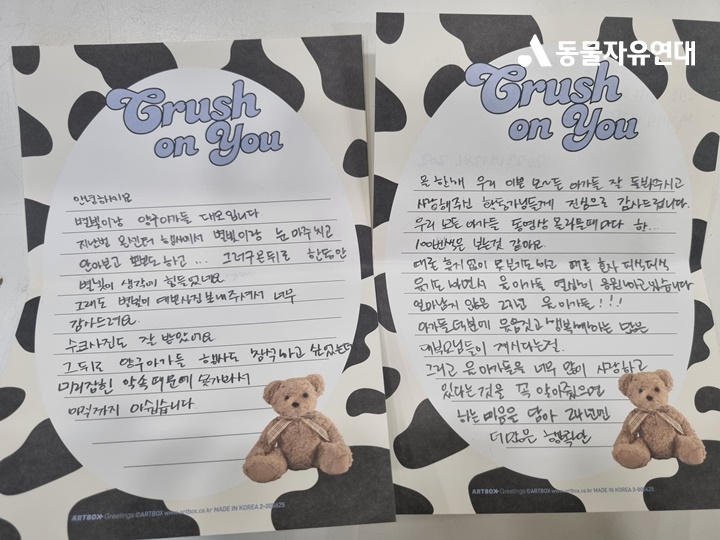 동물자유연대
Crush
on You
안녕하세요
별빛이랑 양구아가들 대모입니다
지난번 온센터 행사에서 별빛이랑 눈 마주치고
안아보고 뽀뽀도하고... 그러구 온뒤로 한동안
별빛이 생각이 힘들었네요
그래도 별빛이 예쁜사진 보내주셔서 너무
감사드려요
수크사진도 잘 받았어요
그 뒤로 양구아가들 행사도 참석하고 싶었는데
미리잡힌 약속때문에 못가봐서
아직까지 아쉽습니다
ARTBOX Greetings ©ARTBOX www.artbox.co.kr MADE IN KOREA
Crush
on You
올 한해 우리 이쁜 모~든 아가들 잘 돌봐주시고
사랑해주신 활동가님들께 진심으로 감사드립니다.
우리 모든 아가들 동영상 올라올때마다 한...
100번씩은 보는것 같아요
때론 쉴새없이 못보기도하고 때론 혼자 피식피식
웃기도 하면서 온 아가들 영상이 응원하고있습니다
얼마남지 않은 23년 온 아가들!!!
아가들 덕분에 웃음짓고 행복해하는 많은
대부모님들이 계시다는걸.
그리고 온 아가들을 너무 많이 사랑하고
있다는것을 꼭 알아줬으면
하는 마음을 담아 24년엔
더많은 행복이
ARTBOX Greetings ©ARTBOX www.artbox.co.kr MADE IN KOREA